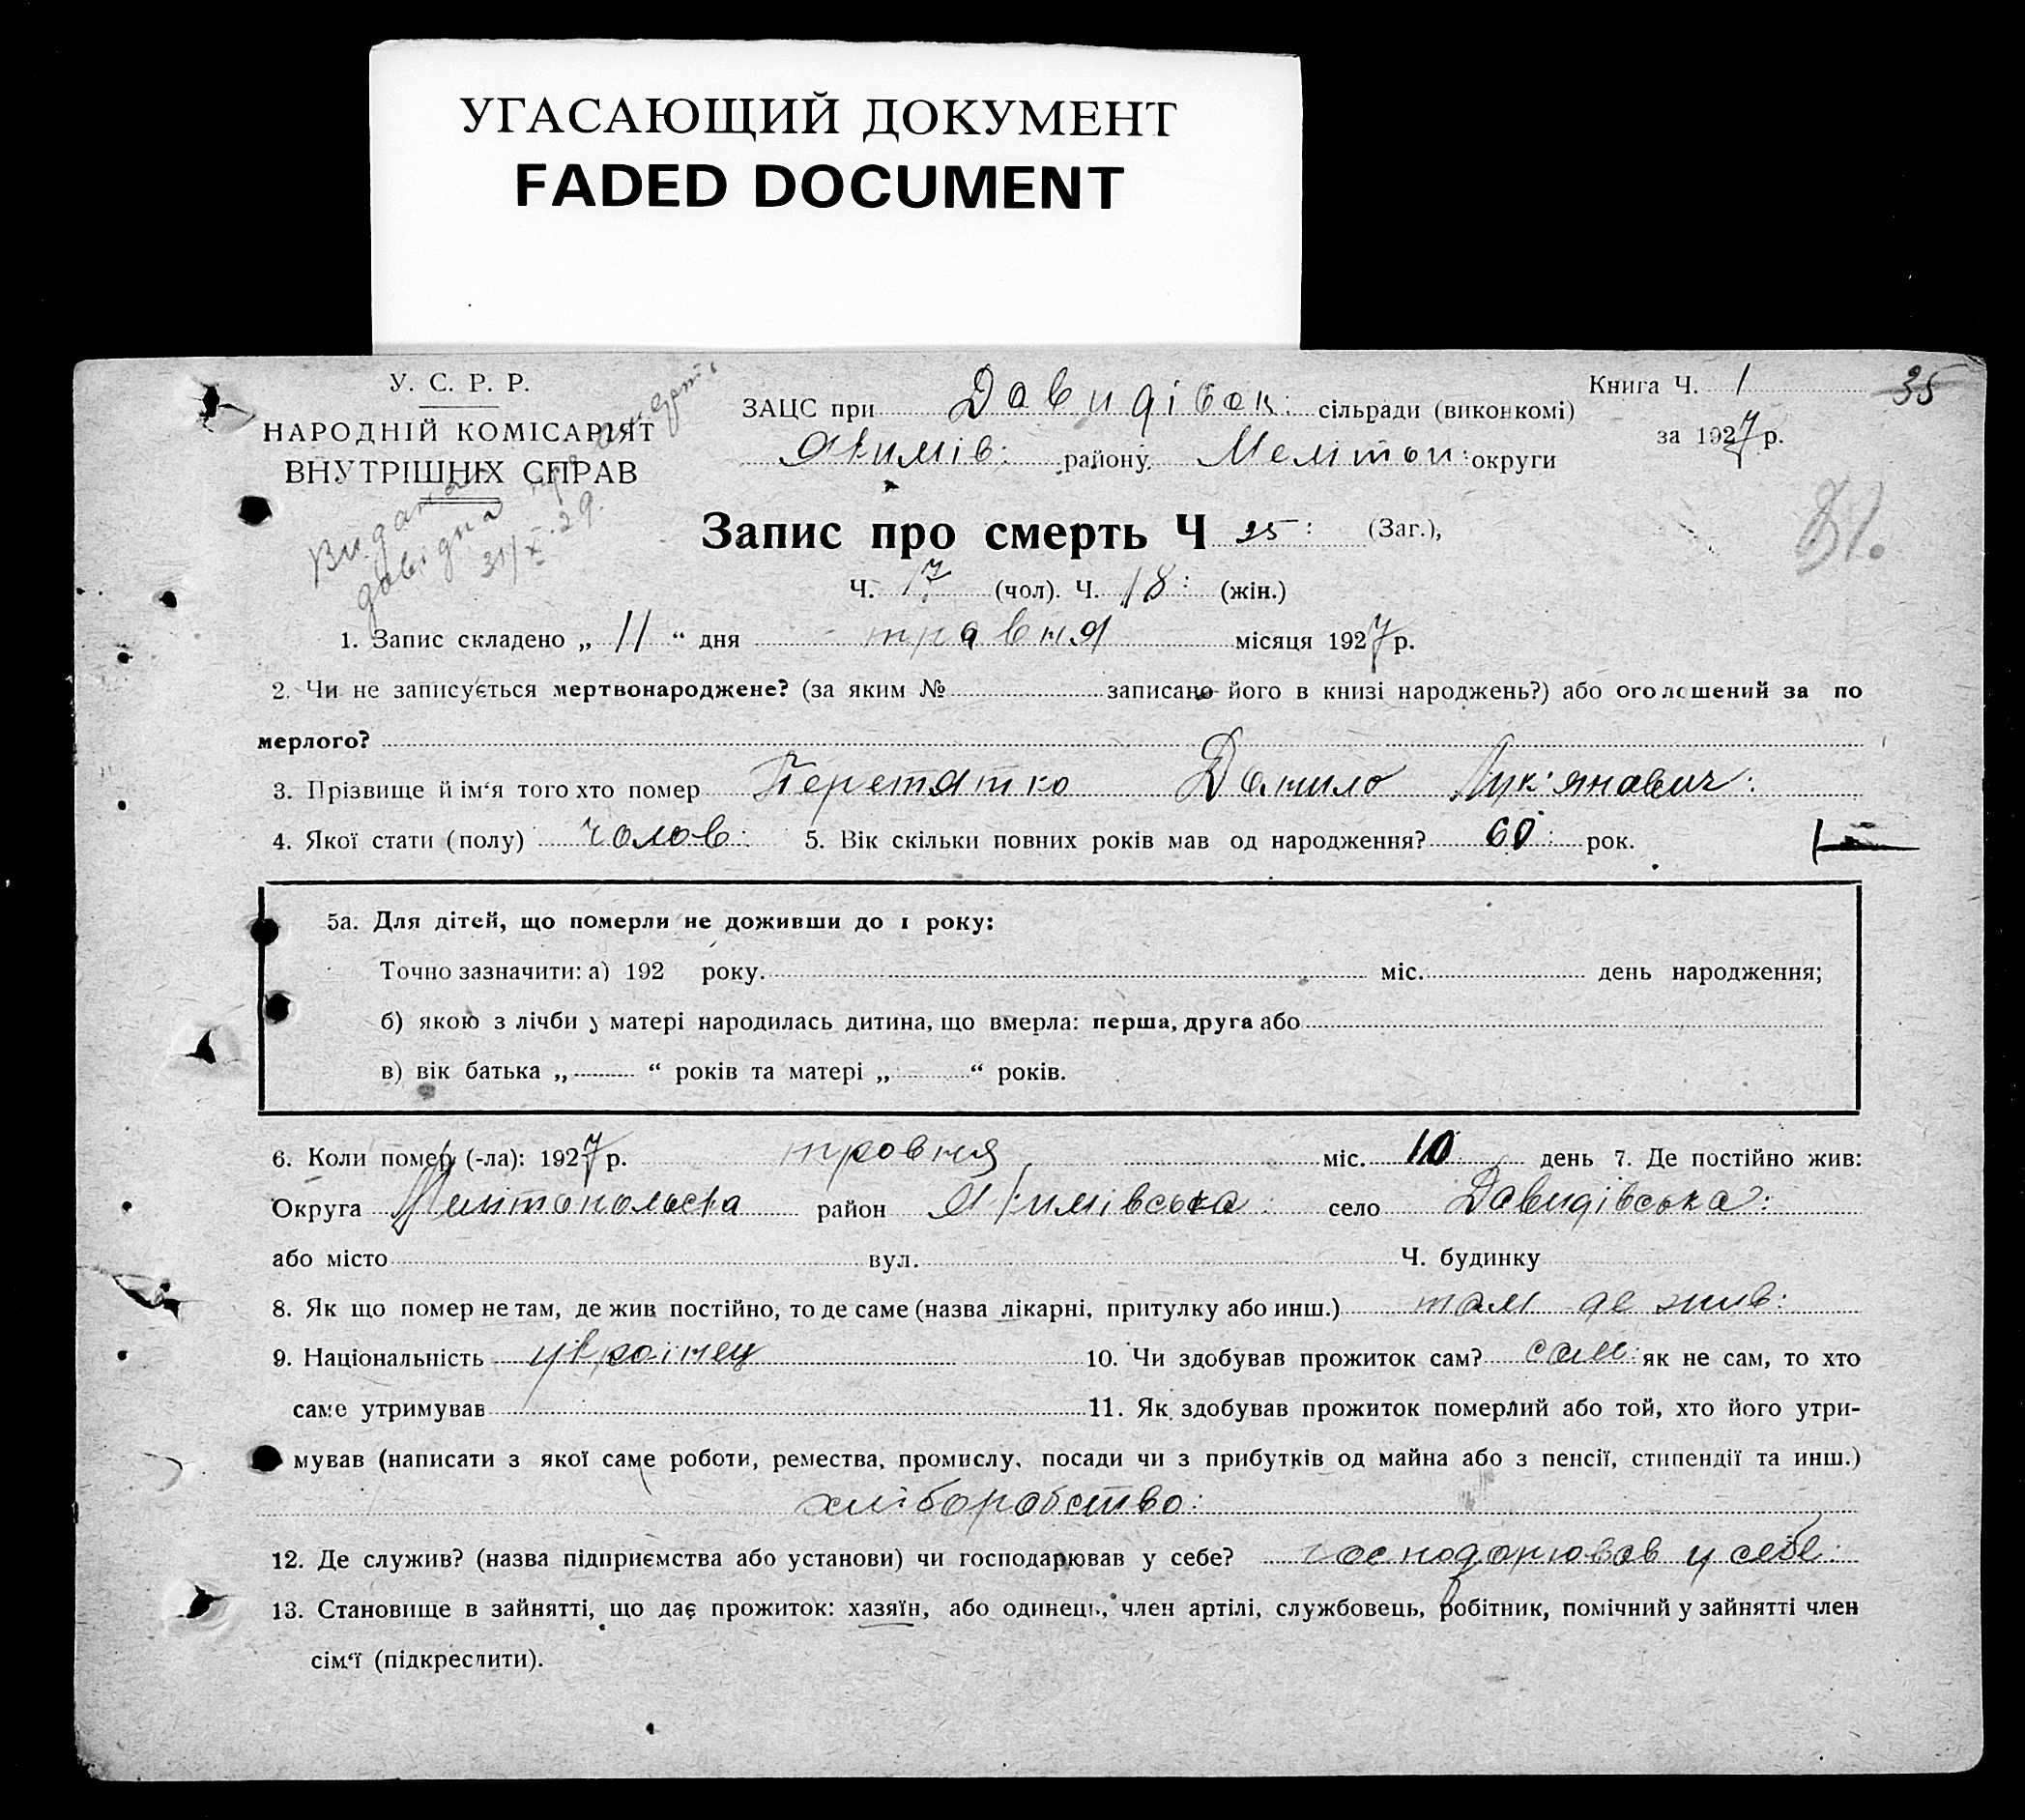 УГАСАЮЩИЙ ДОКУМЕНТ
FADED DOCUMENT
У. С. Р. Р.
НАРОДНІЙ КОМІСАРІЯТ
ВНУТРІШНІХ СПРАВ
Видана довідка про смерть
31/X.29.
Книга Ч. 1
35
за 1927 р.
81.
ЗАЦС при Давидівськ: сільради (виконкомі)
Якимів: району Мелітоп: округи
Запис про смерть Ч 25: (Заг.),
Ч. 17 (чол). Ч. 18: (жін.)
1. Запис складено „ 11 “ дня травня місяця 1927 р.
2. Чи не записується мертвонароджене? (за яким № записано його в книзі народжень?) або оголошений за по
мерлого?
3. Прізвище й ім‘я того хто помер Перетятко Данило Лук'янович:
4. Якої стати (полу) чолов: 5. Вік скільки повних років мав од народження? 60: рок.
5а. Для дітей, що померли не доживши до 1 року:
Точно зазначити: а) 192 року. міс. день народження;
б) якою з лічби у матері народилась дитина, що вмерла: перша, друга або
в) вік батька „ “ років та матері „ “ років.
6. Коли помер (-ла): 1927 р. травня міс. 10 день 7. Де постійно жив:
Округа Мелітопольська район Якимівська: село Давидівська:
або місто вул. Ч. будинку
8. Як що помер не там, де жив постійно, то де саме (назва лікарні, притулку або инш.) там де жив:
9. Національність українец 10. Чи здобував прожиток сам? сам: як не сам, то хто
саме утримував 11. Як здобував прожиток померлий або той, хто його утри-
мував (написати з якої саме роботи, ремества, промислу, посади чи з прибутків од майна або з пенсії, стипендії та инш.)
хліборобство:
12. Де служив? (назва підприємства або установи) чи господарював у себе? господорював у себе:
13. Становище в зайнятті, що дає прожиток: хазяїн, або одинець, член артілі, службовець, робітник, помічний у зайнятті член
сім‘ї (підкреслити).